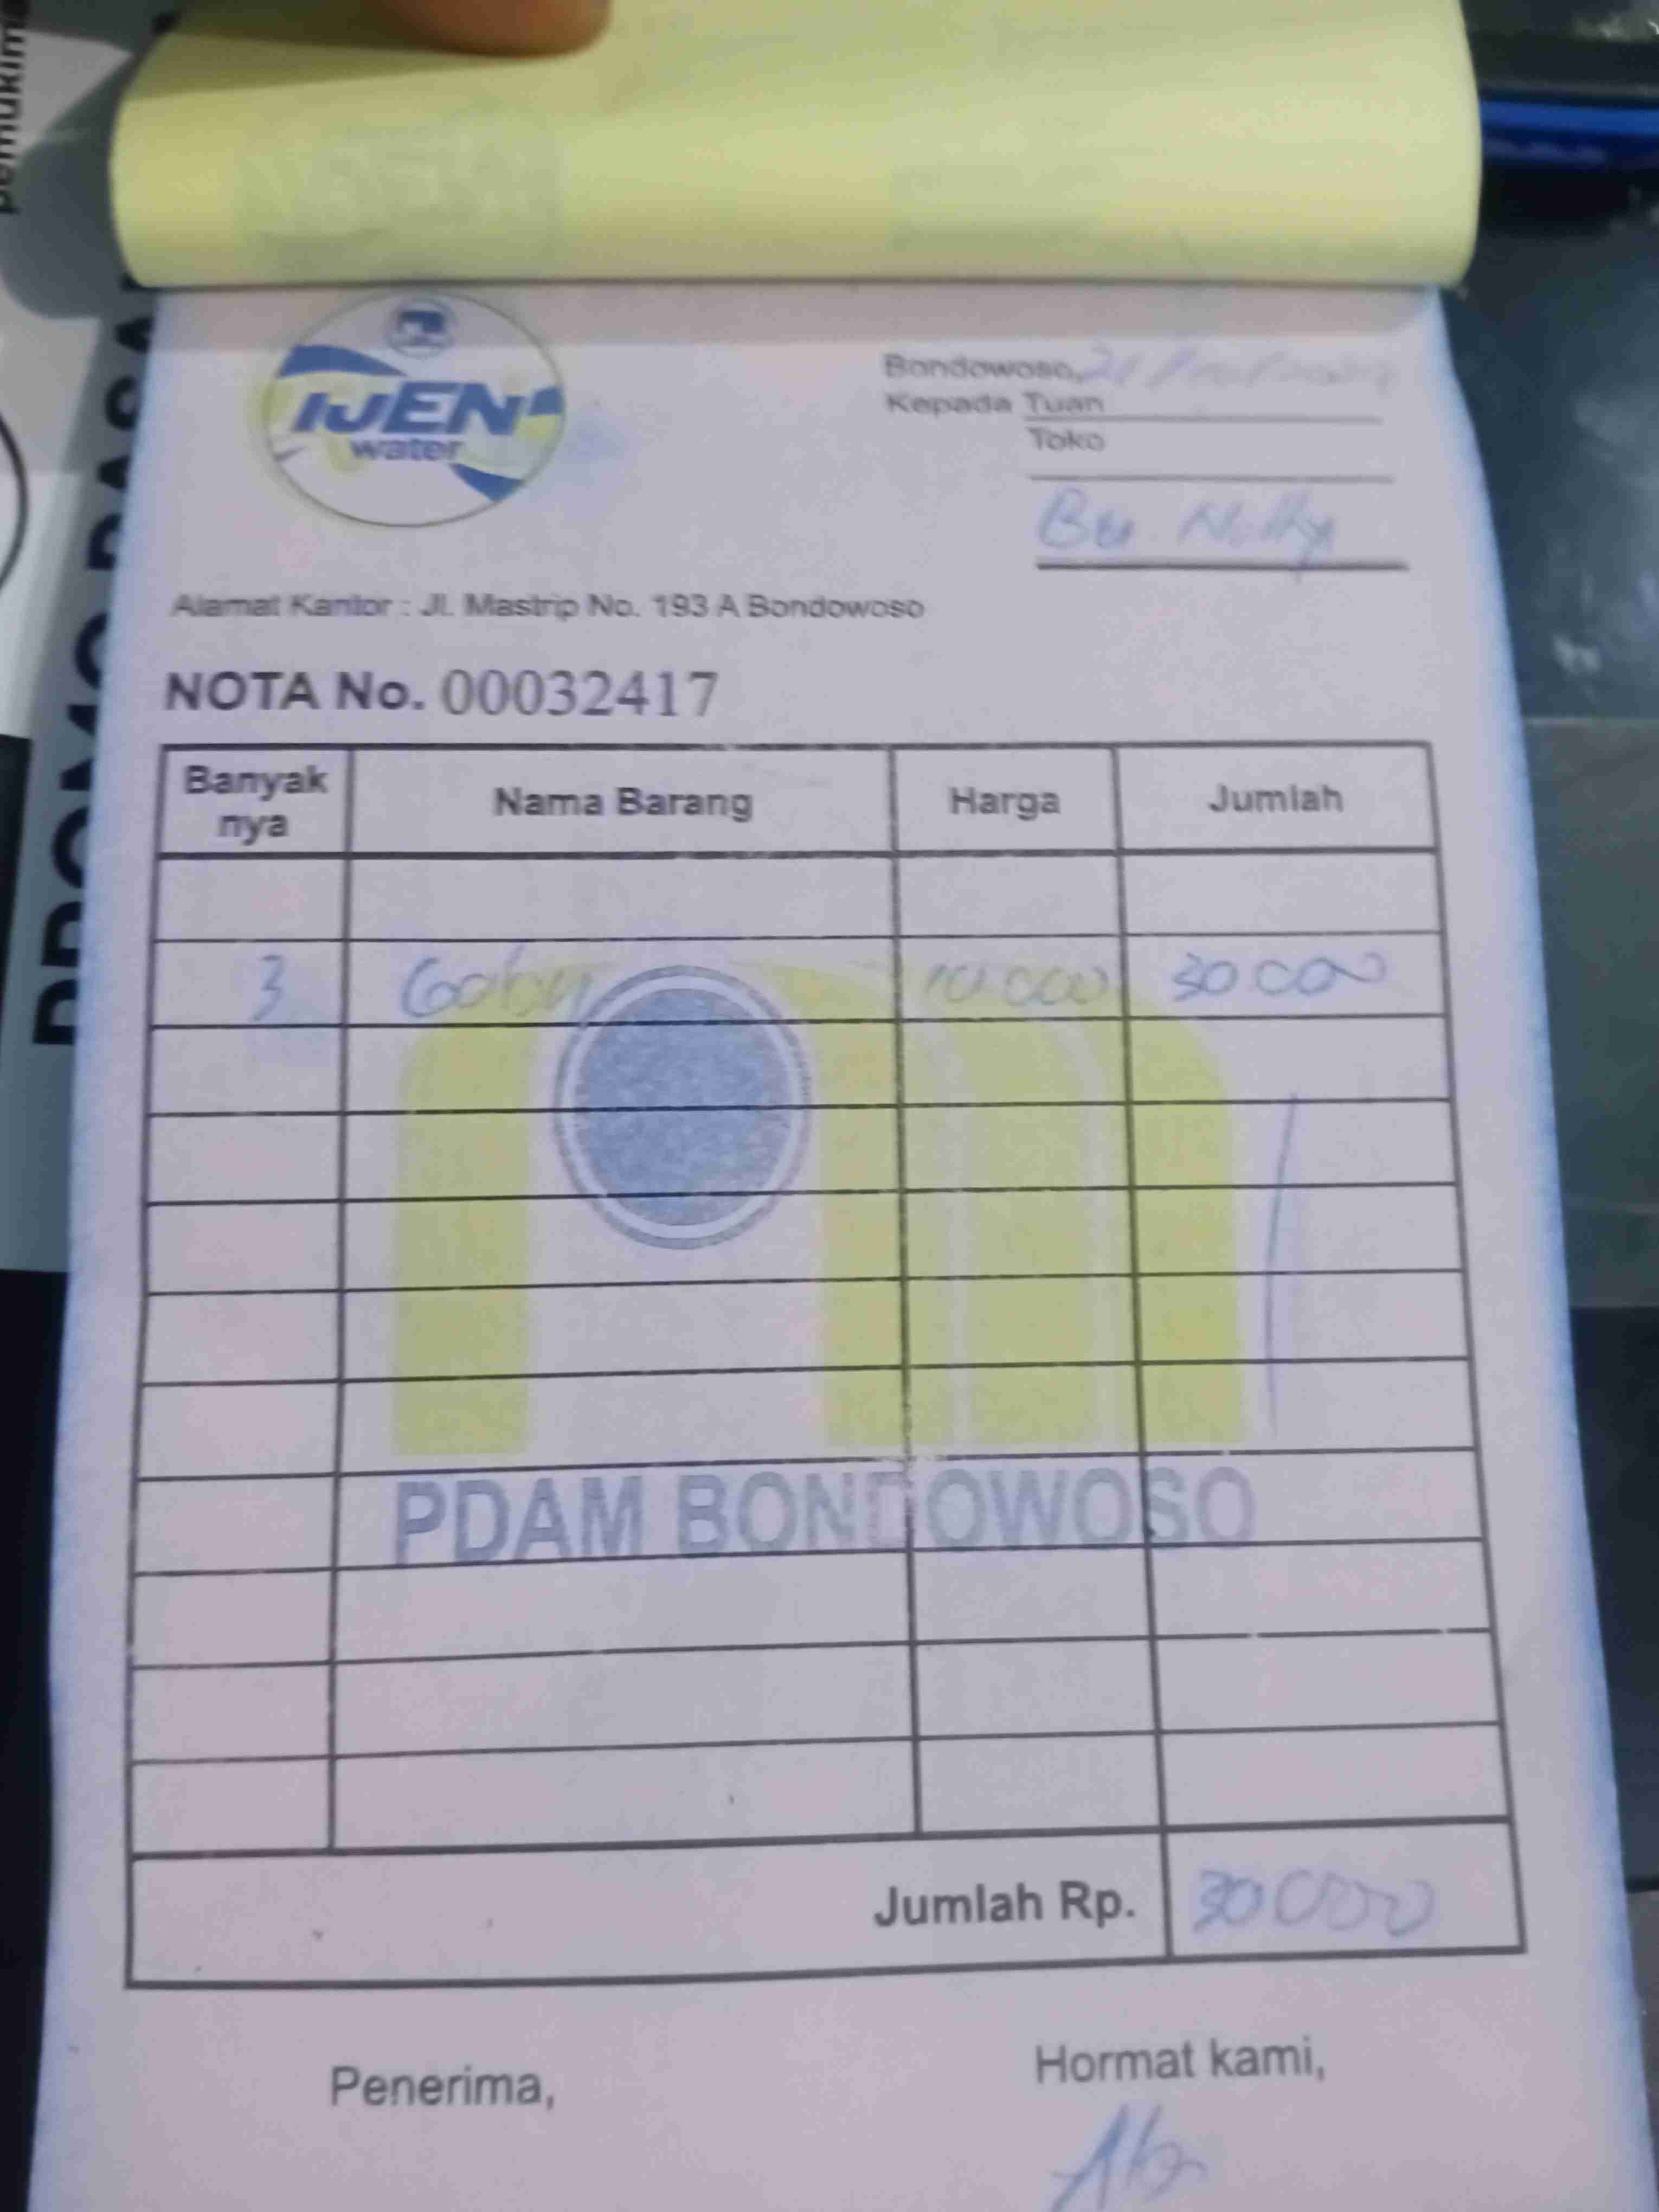 IJEN
water
Bondowoso, 21
Kepada Tuan
Toko
Bu Nelly
Alamat Kantor : Jl. Mastrip No. 193 A Bondowoso
NOTA No. 00032417
Banyak nya Nama Barang Harga Jumlah
3 10.000 30.000
PDAM BONDOWOSO
Jumlah Rp. 30000
Penerima,
Hormat kami,